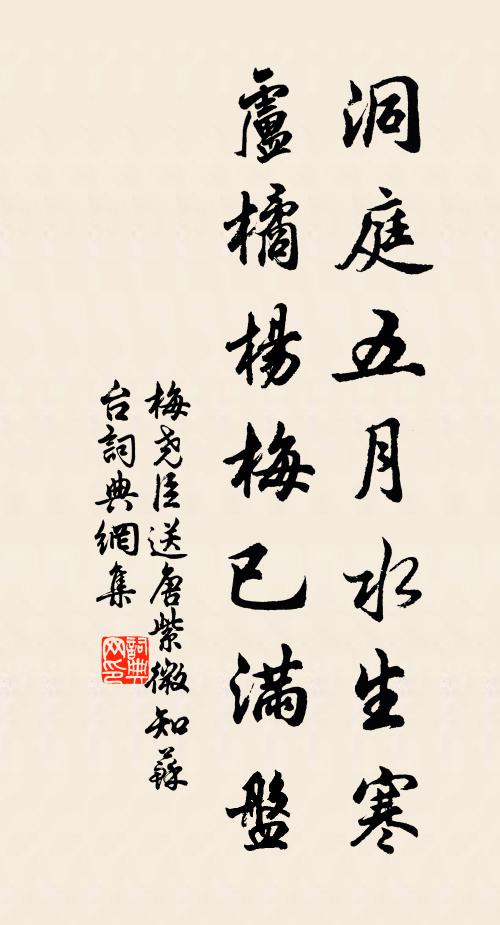 洞庭五月水生寒
盧橘楊梅已滿盤
梅尧臣送唐紫微知蘇
台詞典網集
詞典
网印